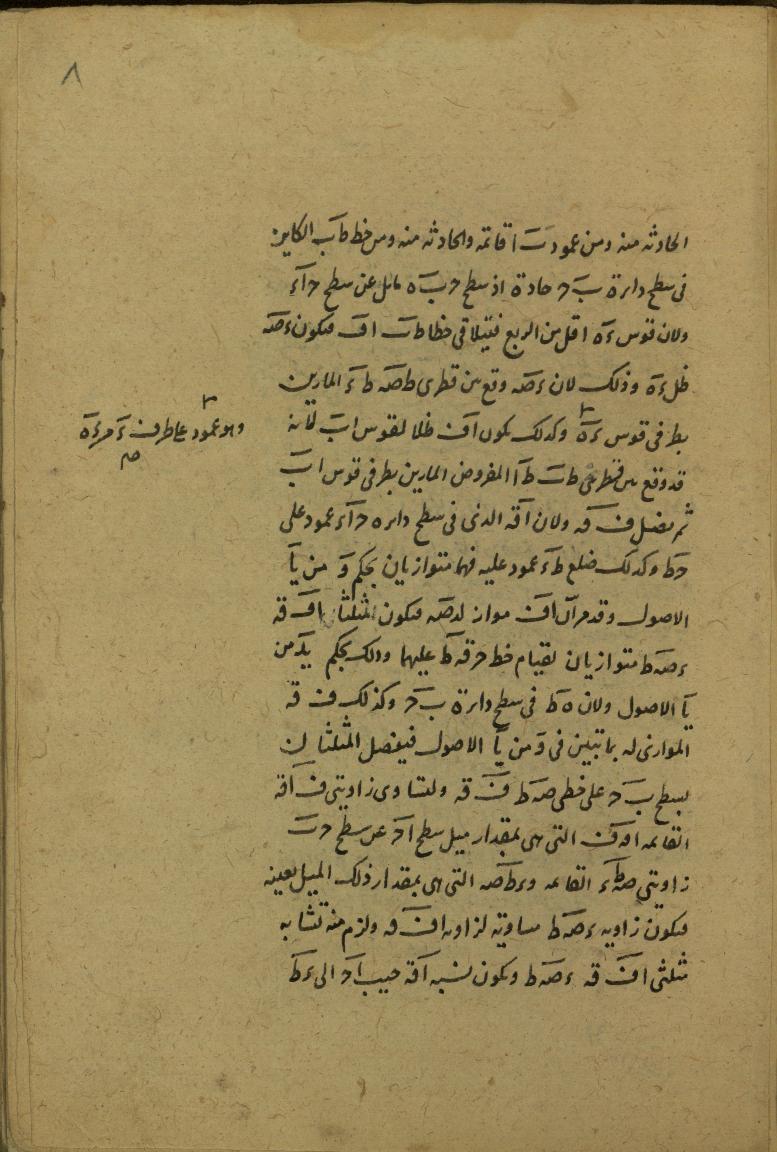 ٨
الحادثه منه ومن عمود ب ا قائمه والحادثه منه ومن خط ط ب الكاين
فى سطح دايرة ب ح حادة اذ سطح ح ب ه مايل عن سطح ح ا ء
ولان قوس ء ه اقل من الربع فيتلاقى خطا ط ب ا ف فيكون ء صه
ظل ء ه وذلك لان ء صه وقع من قطرى ط صه ط ء المارين
بطرفى قوس ء ه وكذلك يكون ا ف ظلا لقوس ا ب لانه
وهو عمود على طرف ء من ء ه
صح
قد وقع من قطرى ط ب ط ا المفروض المارين بطرفى قوس ا ب
ثم نصل ف قه ولان ا قه الذى فى سطح دايره ح ا ء عمود على
ح ط وكذلك ضلع ط ء عمود عليه فهما متوازيان بحكم و من يا
الاصول وقد مر ان ا ف مواز لء صه فيكون المثلثا ا ف قه
ء صه ط متوازيان لقيام خط ح قه ط عليهما وذلك بحكم يد من
يا الاصول ولان ه ط فى سطح دايرة ب ح وكذلك ف قه
الموازى له بما تبين فى و من يا الاصول فيفصل المثلثان
بسطح ب ح على خطى صه ط ف قه ولتساوى زاويتى ف ا قه
القائمه ا قه ف التى هى بمقدار ميل سطح ا ح عن سطح ح ب
زاويتى صه ء ط القائمه و ء ط صه التى هى بمقدار ذلك الميل بعينه
فيكون زاويه ء صه ط مساوية لزاويه ا ف قه ولزم منه تشابه
مثلثى ا ف قه ء صه ط ويكون نسبه ا قه جيب ا ح الى ء ط